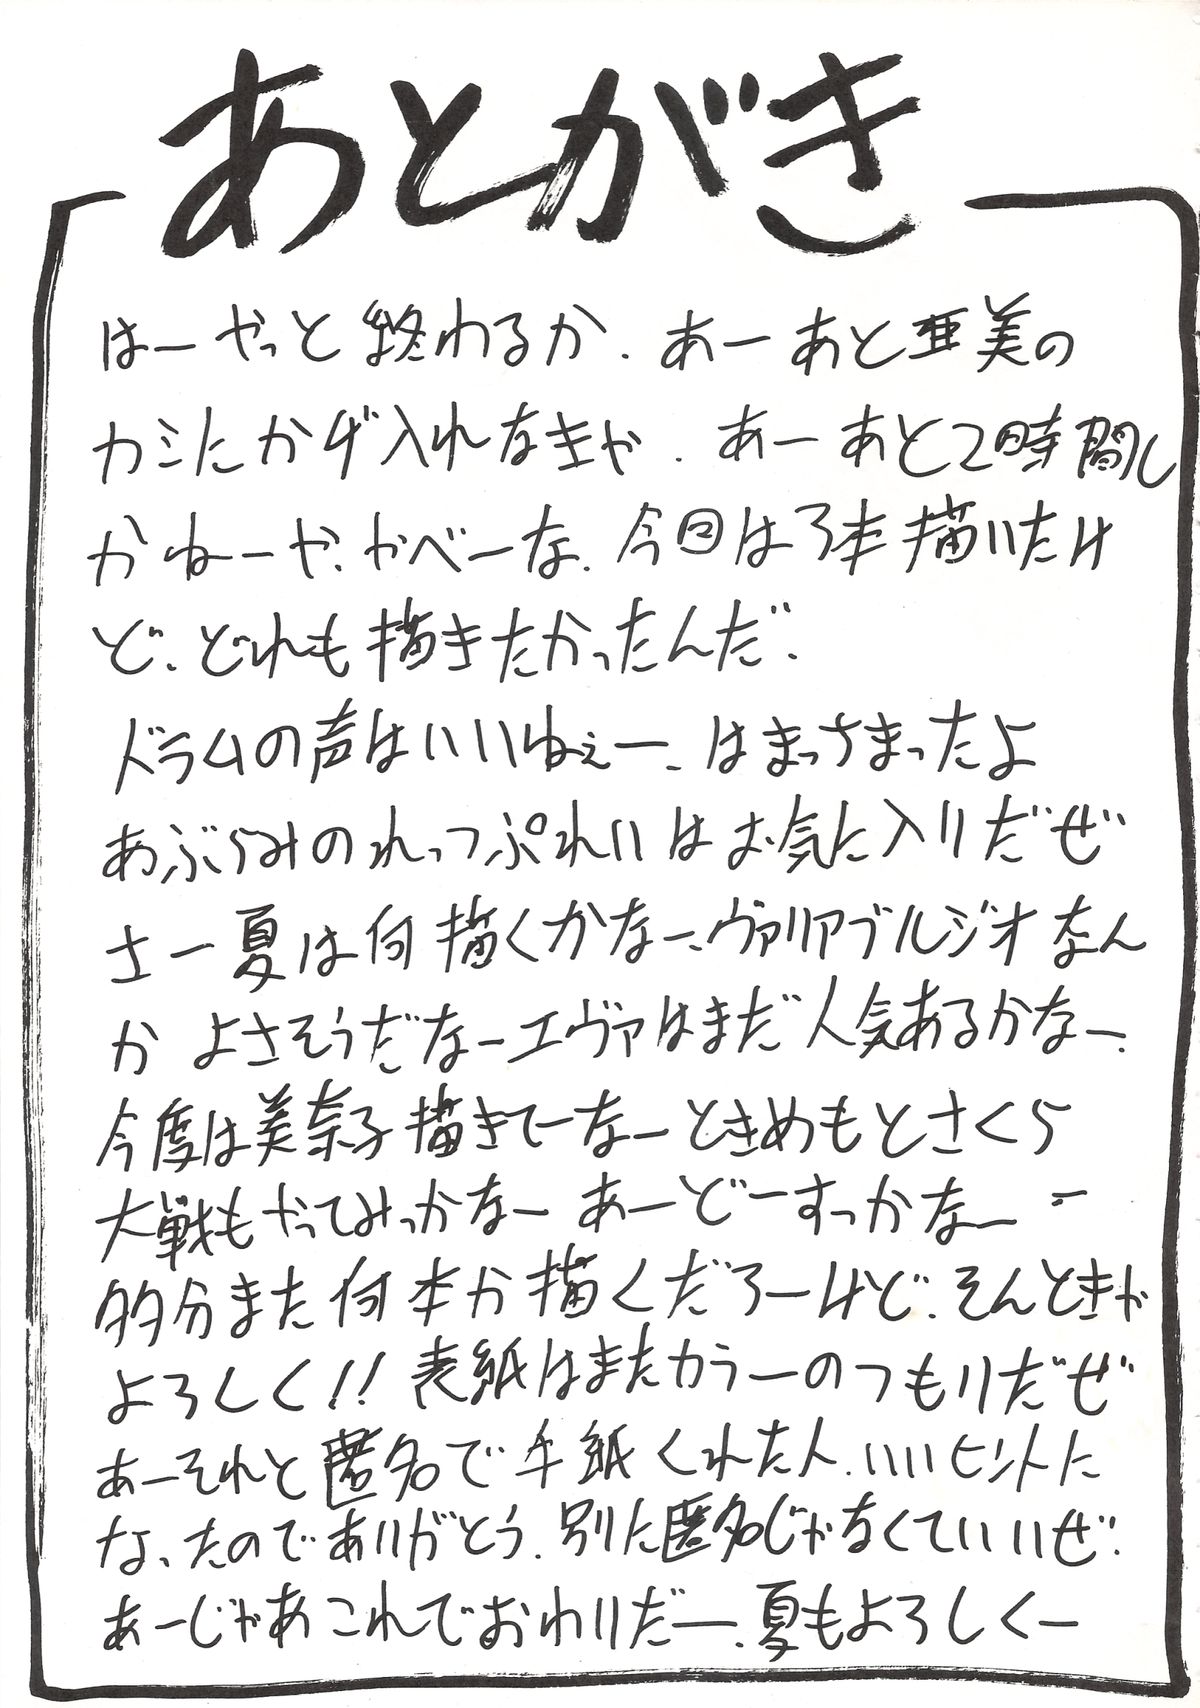 あとがき
はーやっと終わるか．あーあと亜美の
カミにかげ入れなきゃ．あーあと2時間し
かねーや、やべーな．今回は3本描いたけ
ど、どれも描きたかったんだ．
ドラムの声はいいねぇー、はまっさまったよ
あぶらみのれっつぷれいはお気に入りだぜ
さー夏は何描くかなー、ヴァリアブルジオなん
かよさそうだなーエヴァはまだ人気あるかなー．
今度は美奈子描きてーなーときめもとさくら
大戦もやってみっかなーあーどーすっかなーー
多分また何本か描くだろーけど、そんときゃ
よろしく!!表紙はまたカラーのつもりだぜ
あーそれと匿名で手紙くれた人、いいヒントに
なったのでありがとう．別に匿名じゃなくていいぜ．
あーじゃあこれでおわりだー、夏もよろしくー